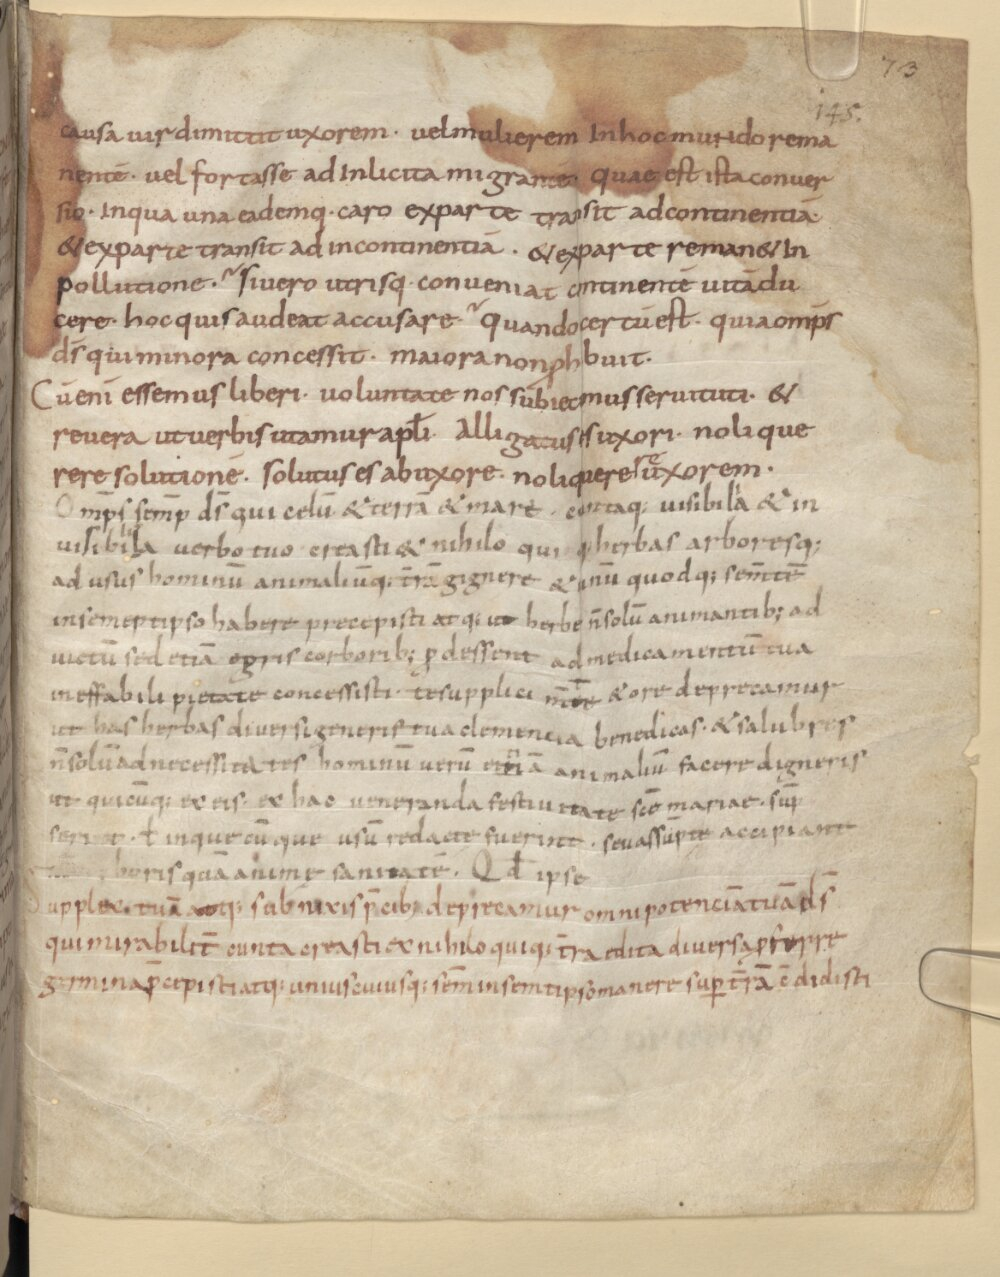 73
145.
causa uir dimittit uxorem · uel mulierem In hoc mundo rema
nentē · uel fortasse ad Inlicita migrantē · Quae est ista conuer
sio · In qua una eademq · caro ex parte transit ad continentiā
& ex parte transit ad incontinentiā · & ex parte reman& In
pollutione · Si uero utrisq · conueniat continentē uitā du
cere · hoc quis audeat accusare · Quando certū est · quia omp̄s
d̄s qui minora concessit · maiora non phbuit ·
Cū eni essemus liberi · uoluntate nos subiecimus seruituti · &
reuera ut uerbis utamur apłi · Alligatus es uxori · noli que
rere solutionē · solutus es ab uxore · noli querere uxorem ·
Omp̄s semp̄ d̄s qui celū & terrā & mare · contaq; uisibilia & in
uisibilia uerbo tuo creasti & nihilo qui herbas arboresq;
ad usus hominū animaliūq; t̄rā gignere & unū quodq; sem̄tē
in semeptipso habere precepisti atq; ut herbe n̄ solū animantib; ad
uictū sed etiā egris corporib; pdessent ad medicamentū tua
ineffabili pietate concessisti · te supplici m̄te & ore deprecamur
ut has herbas diuersi generis tua clemencia benedicas · & salubres
n̄ solū ad necessitates hominū uerū etiā animaliū facere digneris
ut quicūq; ex eis · ex hac ueneranda festiuitate scē mariae · sūp
serint · ł in quecūque usū redacte fuerint · seu assūpte accipiant
corporis quā anime sanitatē · Q d ipse
Supplex tuā atq; subnixis p̄cib; deprecamur omnipotenciā tuā d̄s
qui mirabilit̄ cunta creasti ex nihilo quiq; t̄ra edita diuersa pferre
germina p̄cepisti atq; unius cuiusq; sem̄ in semtipso manere sup t̄rā ē didisti